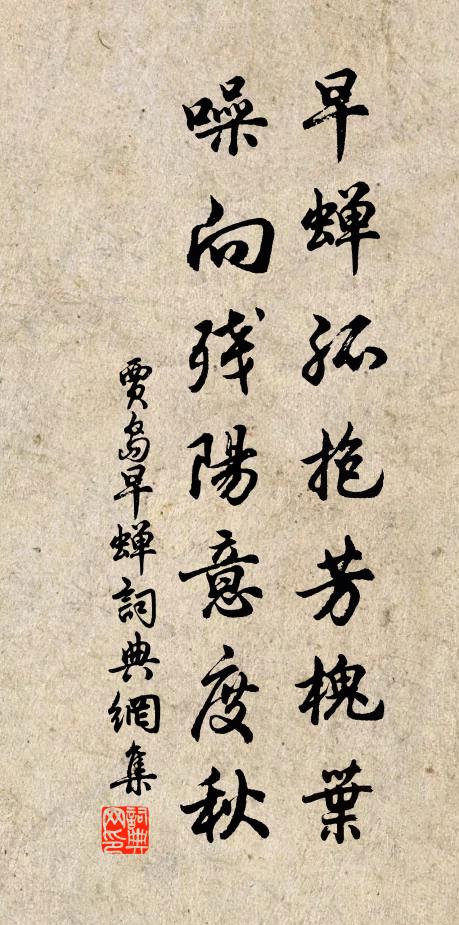 早蝉孤抱芳槐葉
噪向残陽意度秋
賈島早蝉詞典網集
詞典網印